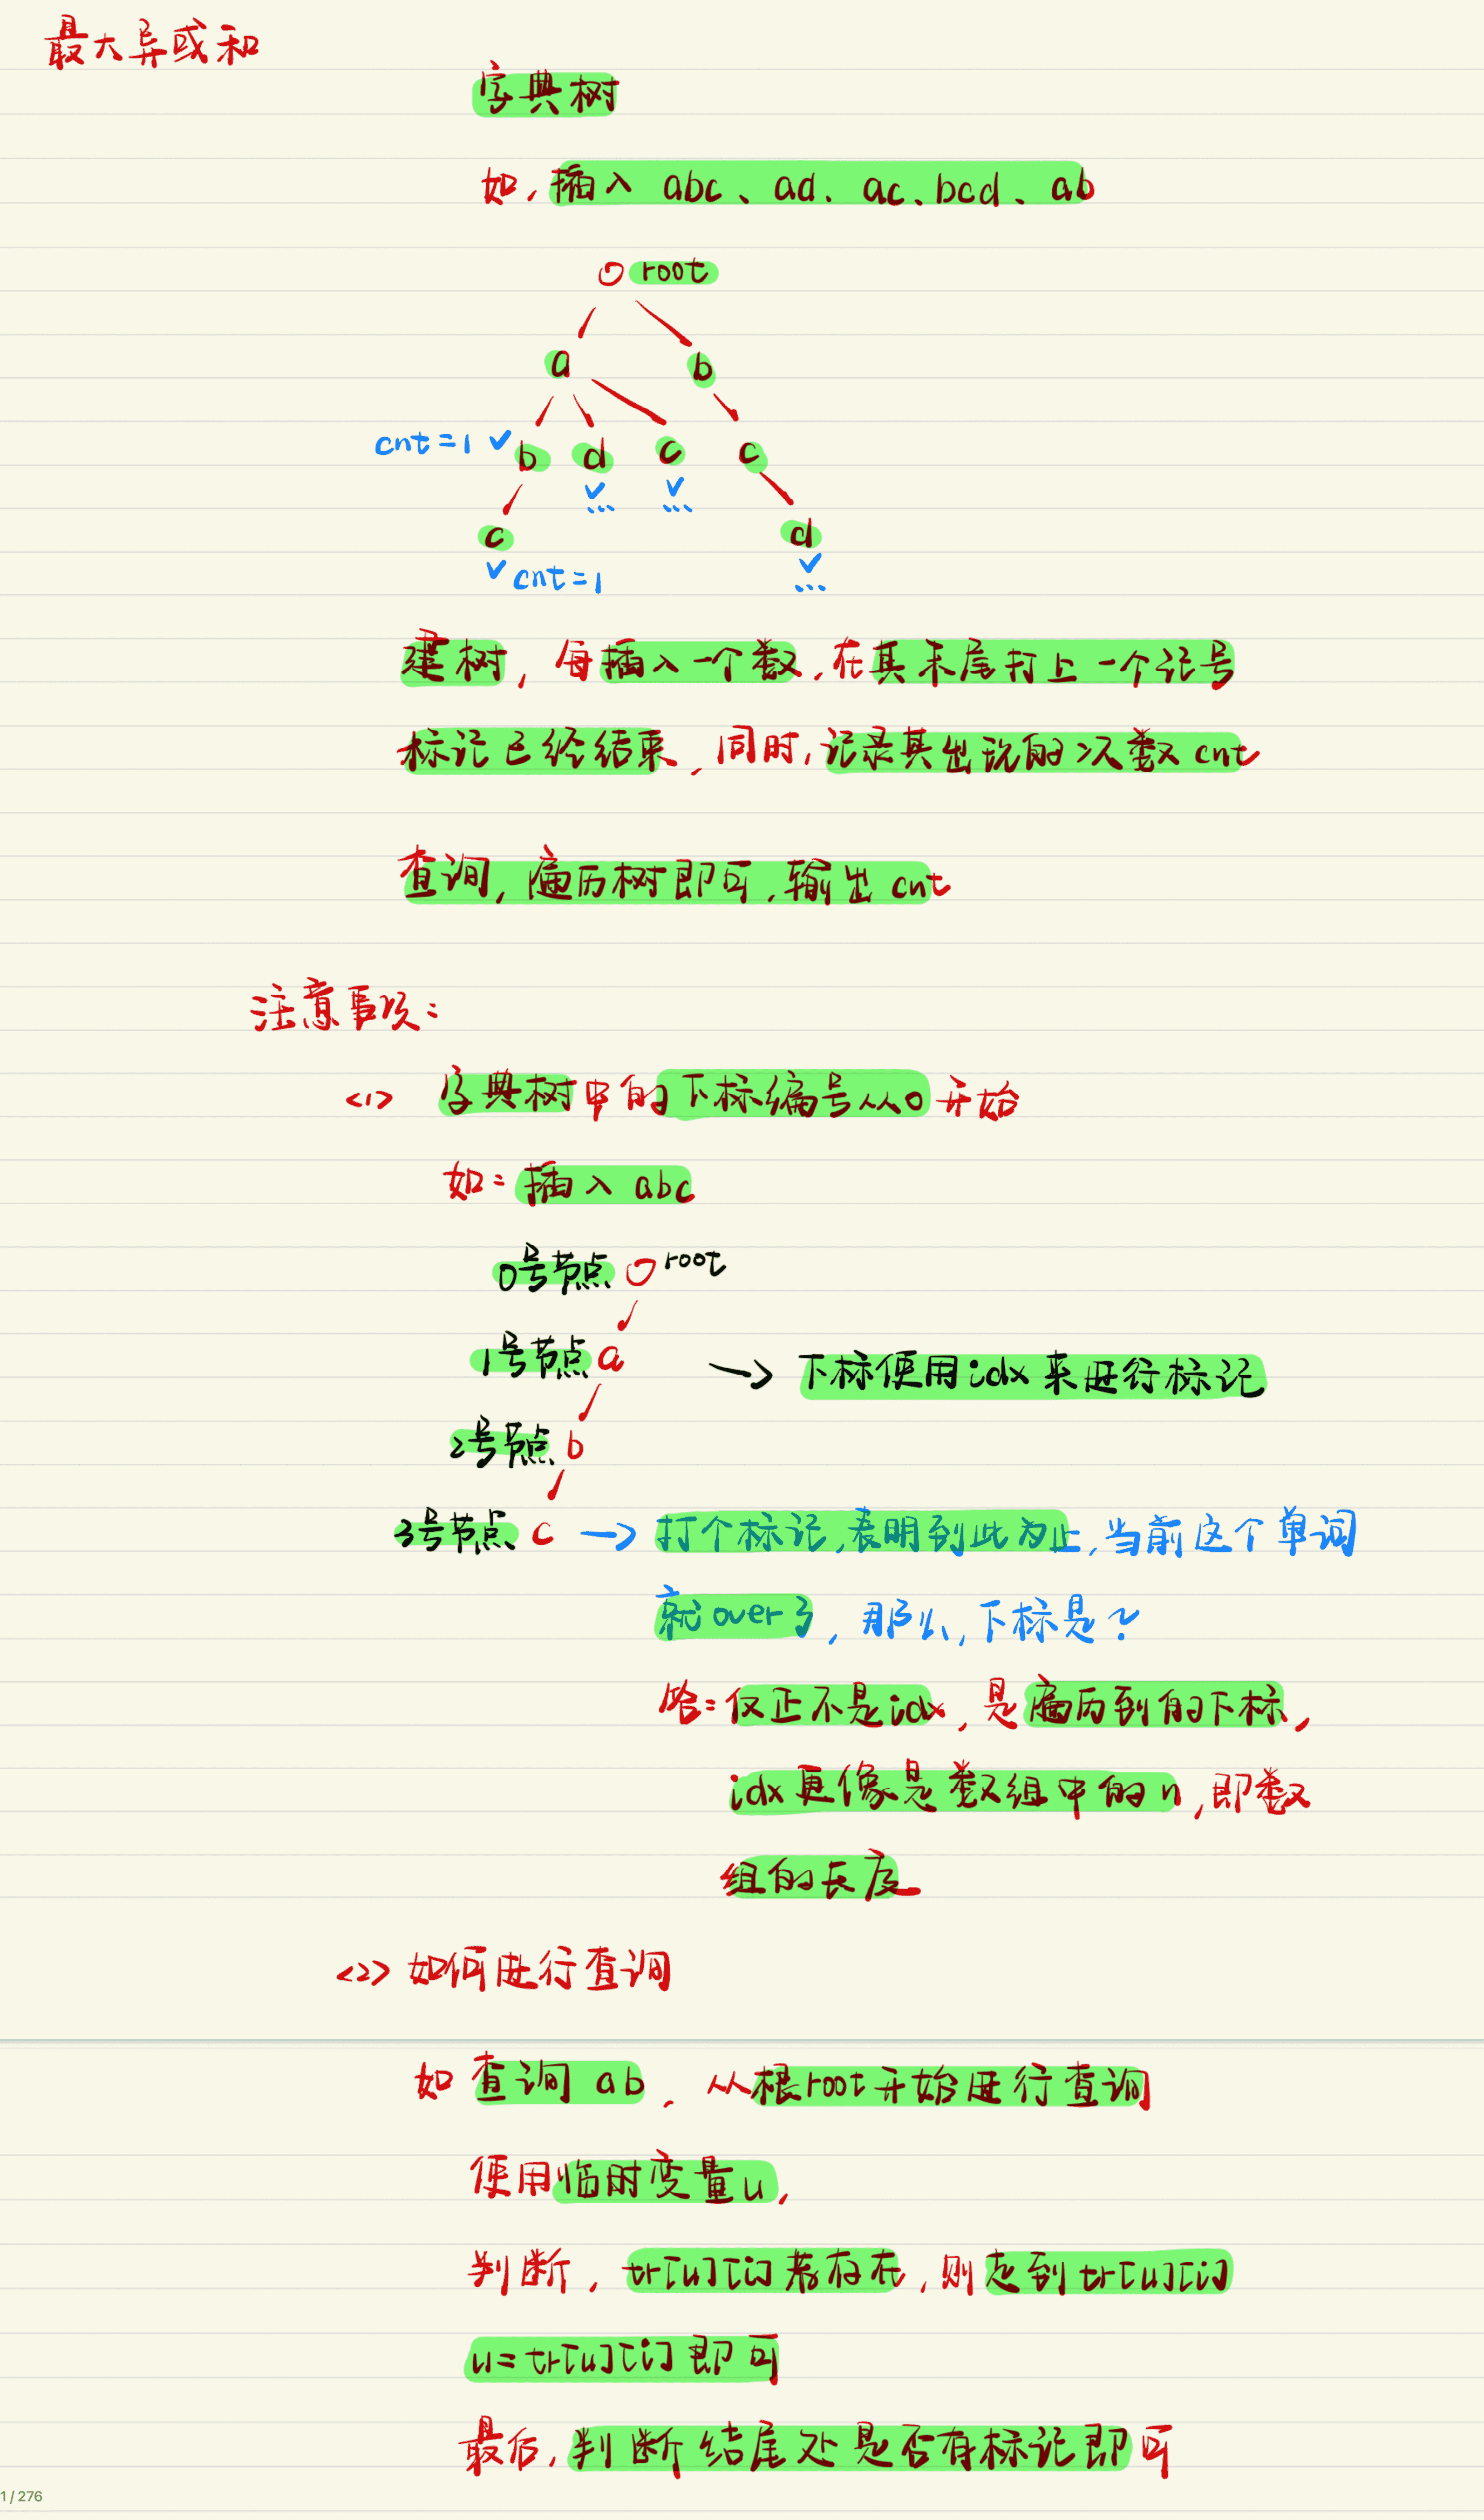 最大异或和
字典树
如,插入 abc、ad、ac、bcd、ab
root
a b
cnt=1 b d c c
... ...
c d
cnt=1 ...
建树,每插入一个数,在其末尾打上一个记号
标记已经结束,同时,记录其出现的次数cnt
查询,遍历树即可,输出cnt
注意事项:
<1> 字典树中的下标编号从0开始
如:插入abc
0号节点 root
1号节点 a → 下标使用idx来进行标记
2号节点 b
3号节点 c → 打个标记,表明到此为止,当前这个单词
就over了,那么,下标是?
答:反正不是idx,是遍历到的下标,
idx更像是数组中的n,即数
组的长度
<2> 如何进行查询
如查询ab,从根root开始进行查询
使用临时变量u,
判断,tr[u][i]若存在,则走到tr[u][i]
u=tr[u][i]即可
最后,判断结尾处是否有标记即可
1 / 276